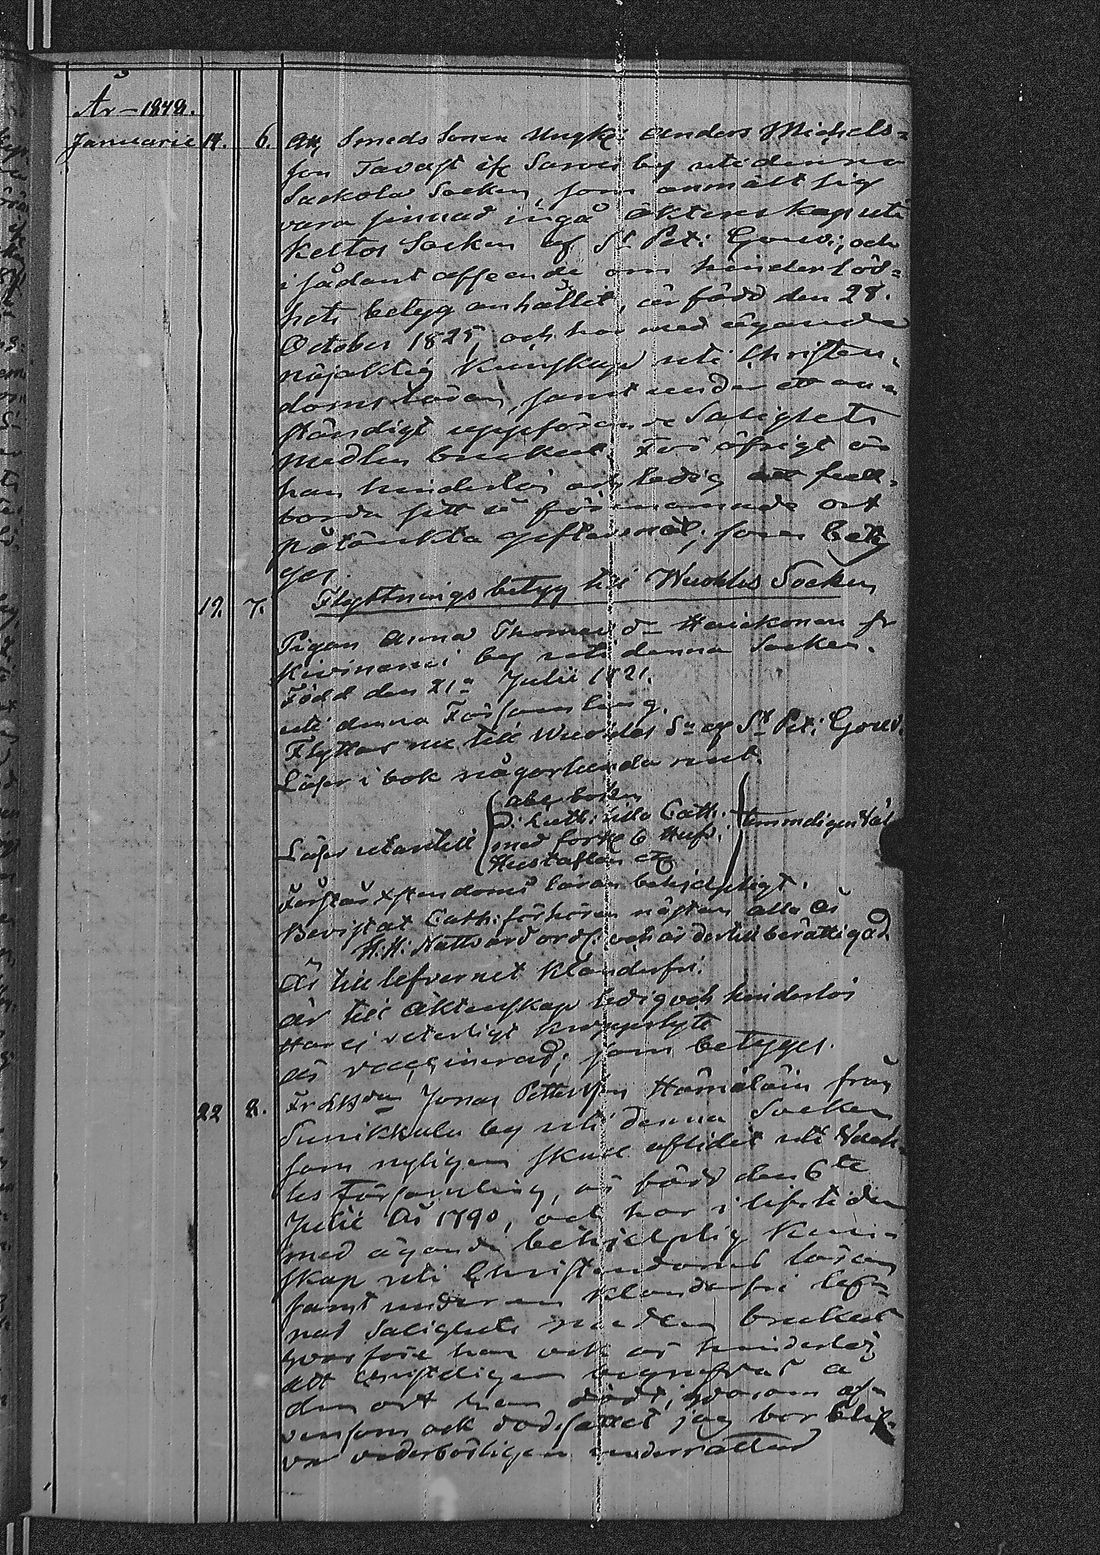 År 1848.
Januarii 14. 6. Att Smeds Sonen Ungk: Anders Michels=
son Tavast ifr Sarvis by uti denna
Saskola Socken, som anmält sig
vara sinnad ingå Äktenskap uti
Keltos Socken af St Pet: Gouv:, och
i sådant afseende om hinderlös=
hets betyg anhållit, är född den 28.
October 1825, och har med ägande
nöjaktig Kunskap uti Christen=
doms läran, samt under ett an=
ständigt uppförande Salighets
medlen brukat. För öfrigt är
han hinderlös och ledig att full=
borda sitt å förenämnde ort
påtänkta giftermål, som bety
ges
19. 7. Flyttnings betyg till Wuoles Socken
Pigan Anna Thomasd:r Hauikonen fr
Kiviniemi by uti denna Socken.
Född den 21a Julii 1821.
uti denna Församling.
Flyttar nu till Wuoles Sn af St Pet: Gouv.
Läser i bok någorlunda rent.
Läser utantill
abc boken
D: Luth: lilla Cath:
med fork: & Husf:
Hustaflan etc
Förstår Xstendoms läran behjelpligt.
Bevistat Cath: förhören nästan alla år
H. H: Nattvard ord: och är dertill berättigad.
Är till lefvernet klanderfri.
är till Äktenskap ledig och hinderlös
Har ej veterligt kroppslyte
är vaccinerad; som betyges.
22 8. Jonas Pettersson Hämäläin från
Sunikkala by uti denna Socken
som nyligen skall aflidit uti Wuo=
les Församling, är född den 6te
Julii År 1790, och har i lifstiden
med ägande behjelplig Kun=
skap uti Christendoms läran
samt under en klanderfri lef=
nad Salighets medlen brukat
hvarföre han ock är hinderlös
att christeligen begrafvas å
den ort han dödt, hvarom äf=
vensom ock dödssättet jag bör blif=
va vederbörligen underrättad